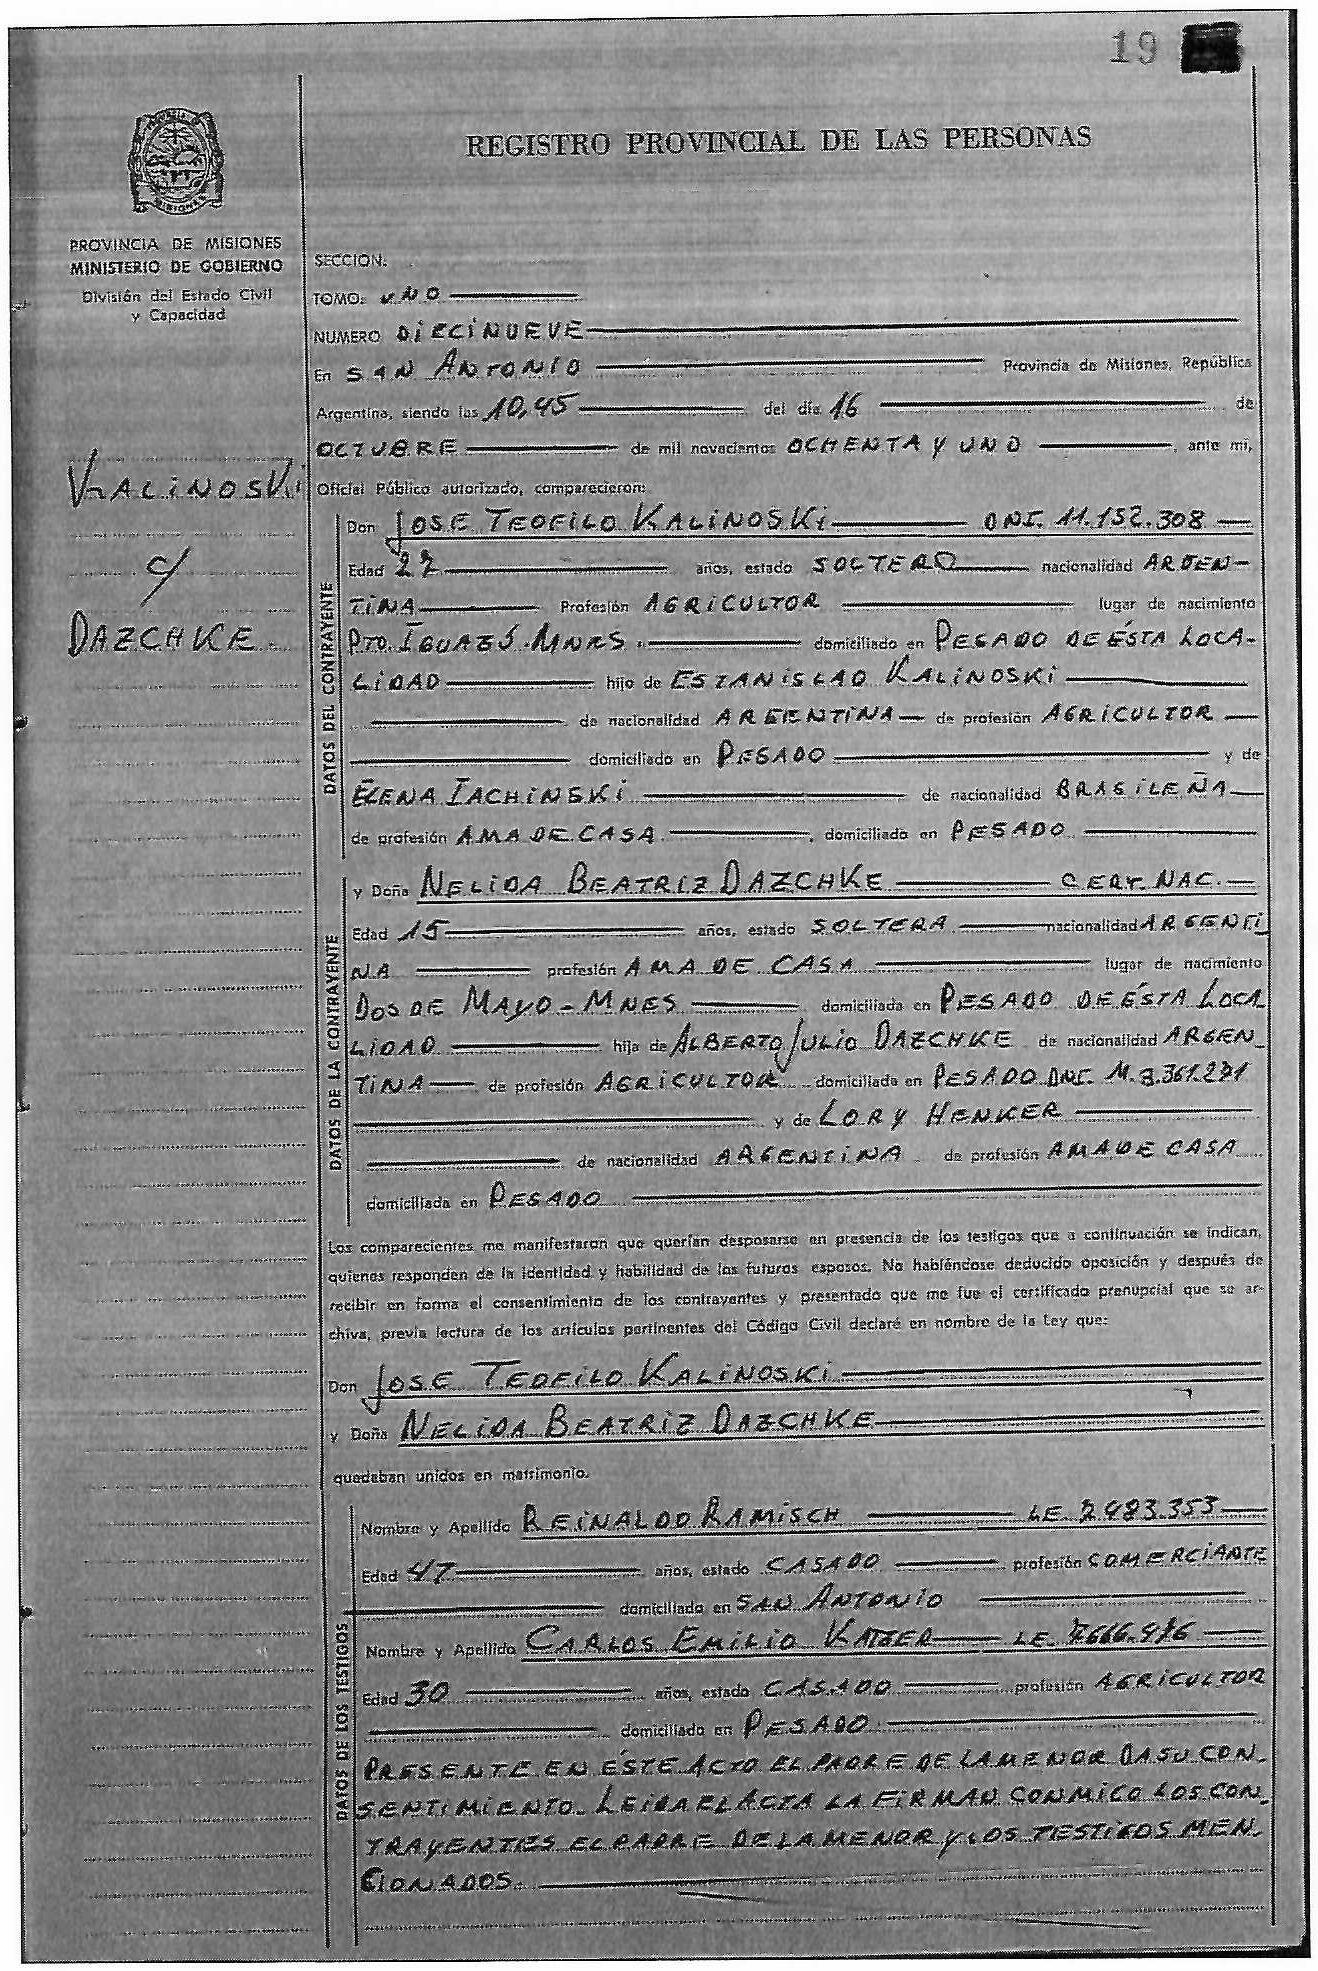 19
REGISTRO PROVINCIAL DE LAS PERSONAS
PROVINCIA DE MISIONES
MINISTERIO DE GOBIERNO
División del Estado Civil
y Capacidad
KALINOSKI
c/
DAZCHKE
SECCION.
TOMO. UNO
NUMERO DIECINUEVE
En SAN ANTONIO Provincia de Misiones, República
Argentina, siendo las 10,45 del día 16 de
OCTUBRE de mil novecientos OCHENTA Y UNO, ante mí,
Oficial Público autorizado, comparecieron:
DATOS DEL CONTRAYENTE
Don JOSE TEOFILO KALINOSKI DNI. 11.152.308
Edad 27 años, estado SOLTERO nacionalidad ARGEN-
TINA Profesión AGRICULTOR lugar de nacimiento
PTO. IGUAZÚ-MNES. domiciliado en PESADO DE ÉSTA LOCA-
LIDAD hijo de ESTANISLAO KALINOSKI
de nacionalidad ARGENTINA de profesión AGRICULTOR
domiciliado en PESADO y de
ELENA IACHINSKI de nacionalidad BRASILEÑA
de profesión AMA DE CASA. domiciliado en PESADO
DATOS DE LA CONTRAYENTE
y Doña NELIDA BEATRIZ DAZCHKE CERT. NAC.
Edad 15 años, estado SOLTERA nacionalidad ARGENTI
NA profesión AMA DE CASA lugar de nacimiento
DOS DE MAYO-MNES domiciliada en PESADO DE ÉSTA LOCA
LIDAD hija de ALBERTO JULIO DAZCHKE de nacionalidad ARGEN-
TINA de profesión AGRICULTOR domiciliada en PESADO DNI. M.
y de LORY HENKER
de nacionalidad ARGENTINA de profesión AMA DE CASA
domiciliada en PESADO
Los comparecientes me manifestaron que querían desposarse en presencia de los testigos que a continuación se indican,
quienes responden de la identidad y habilidad de los futuros esposos. No habiéndose deducido oposición y después de
recibir en forma el consentimiento de los contrayentes y presentado que me fue el certificado prenupcial que se ar-
chiva, previa lectura de los artículos pertinentes del Código Civil declaré en nombre de la Ley que:
Don JOSE TEOFILO KALINOSKI
y Doña NELIDA BEATRIZ DAZCHKE
quedaban unidos en matrimonio.
DATOS DE LOS TESTIGOS
Nombre y Apellido REINALDO RAMISCH LE. 7.483.353
Edad 47 años, estado CASADO profesión COMERCIANTE
domiciliado en SAN ANTONIO
Nombre y Apellido CARLOS EMILIO LE.
Edad 30 años, estado CASADO profesión AGRICULTOR
domiciliado en PESADO
PRESENTE EN ÉSTE ACTO EL PADRE DE LA MENOR DA SU CON-
SENTIMIENTO. LEIDA EL ACTA LA FIRMAN CONMIGO LOS CON-
TRAYENTES EL PADRE DE LA MENOR Y LOS TESTIGOS MEN-
CIONADOS.